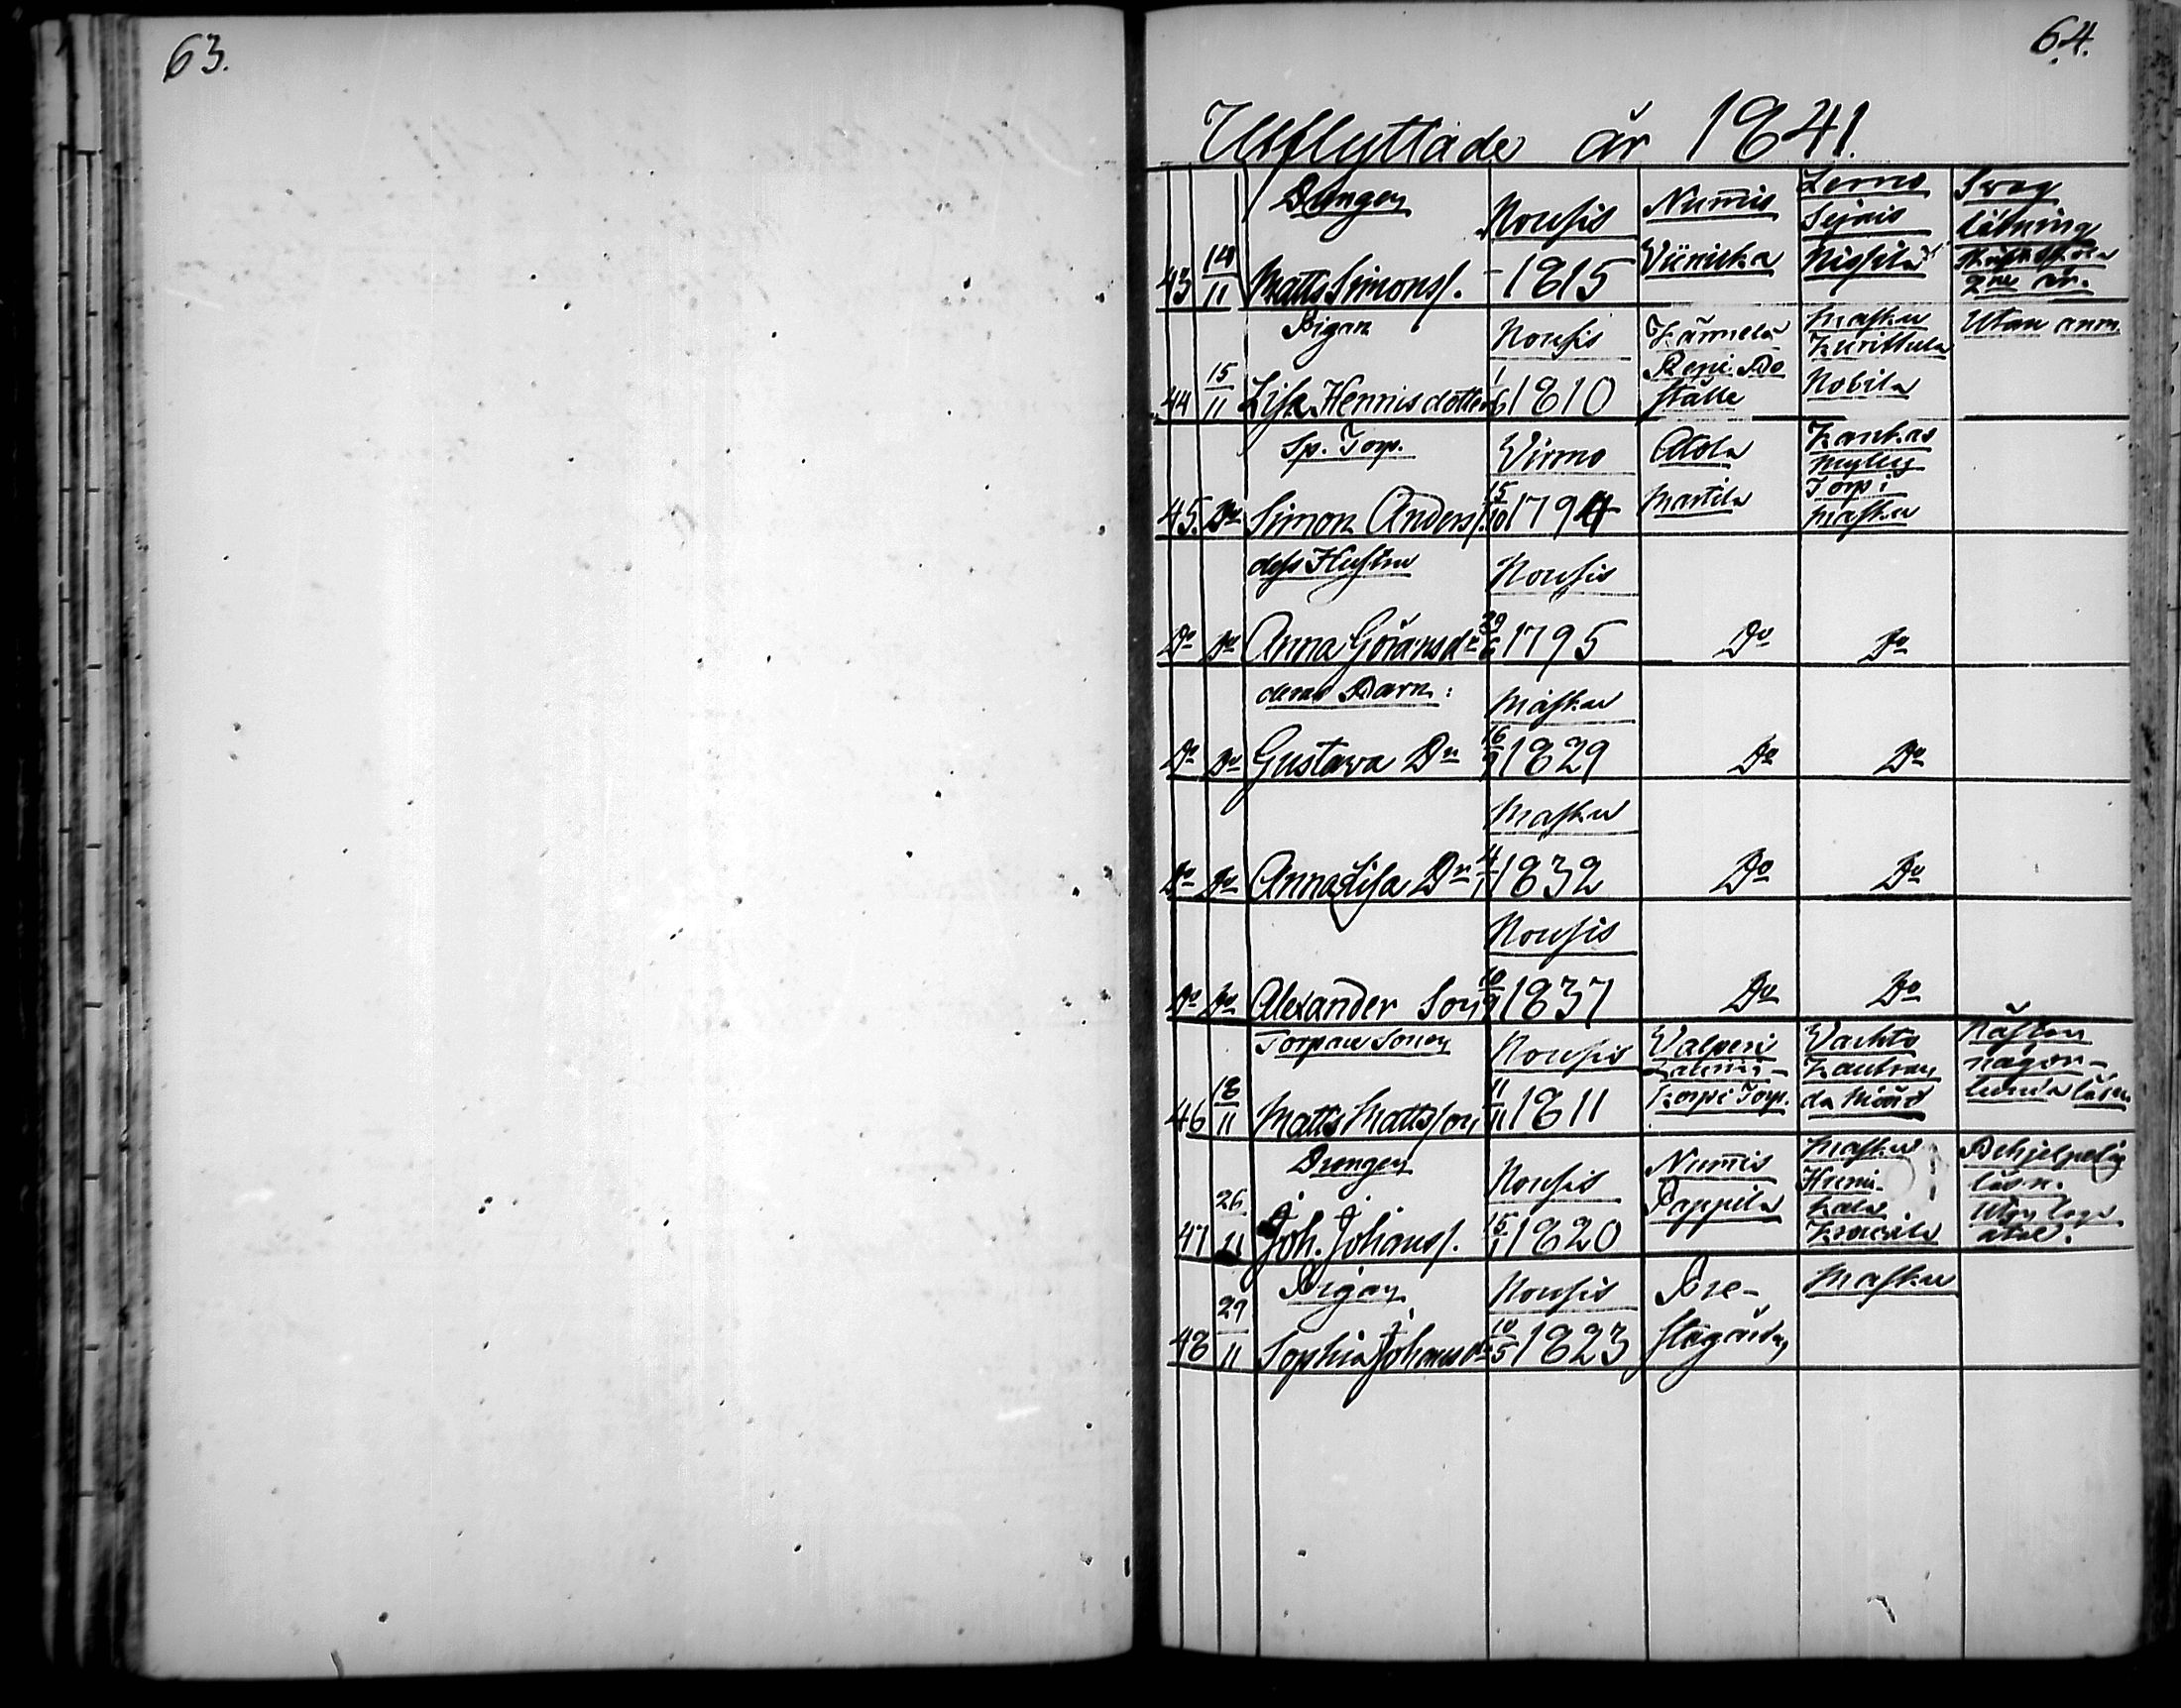 63.
64.
Utflyttade år 1841.
43 14/11 Drengen Matts Simonss. Nousis 1815 Nummis Viinicka Lemo Seijais Nissilä Swag läsning
2ne år.
44 15/11 Pigan Lisa Henriksdotter Nousis 1/6 1810 Kärmelä Bo ställe Masku Kurittula Nobila Utan anm.
45. Do Sp. Torp. Simon Anderss. Wirmo 15/10 1794 Martila Kankas Torp i Masku
Do Do dess Hustru Anna Göransdr Nousis 29/6 1795 Do Do
Do Do deras Barn: Gustava Dr Masku 16/9 1829 Do Do
Do Do Anna Lisa Dr Masku 4/1 1832 Do Do
Do Do Alexander Son Nousis 10/9 1837 Do Do
46 18/11 Torpare Sonen Matts Mattsson Nousis 11/11 1811 Walperi Torp. Wachto Nästan någon-
lunda läsn.
47 26/11 Drengen Joh. Johanss. Nousis 15/1 1820 Nummis Pappila Masku Humi-
kala Behjelpelig
läsn.
48 29/11 Pigan Sophia Johansdr Nousis 10/5 1823 Pre-
stgården Masku